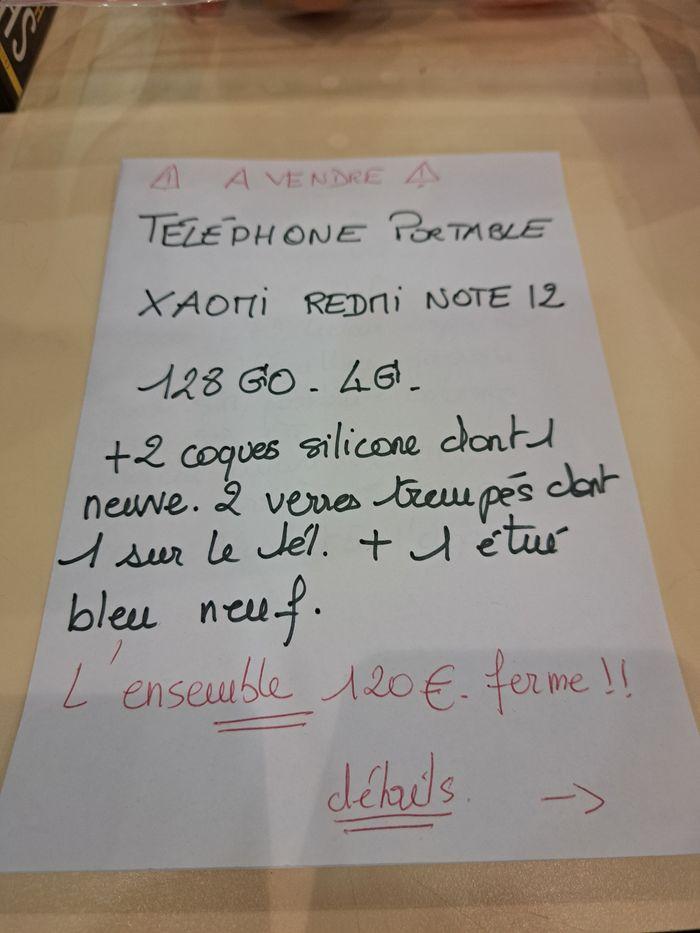 ⚠ A VENDRE ⚠
TÉLÉPHONE PORTABLE
XAOMI REDMI NOTE 12
128 GO - 4G -
+2 coques silicone dont 1
neuve. 2 verres trempés dont
1 sur le tél. + 1 étui
bleu neuf.
L'ensemble 120€. ferme !!
détails. →